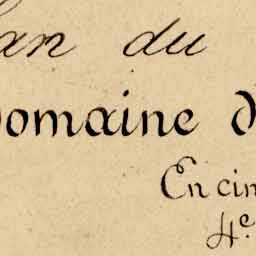 an du
omaine d
En cin
4e